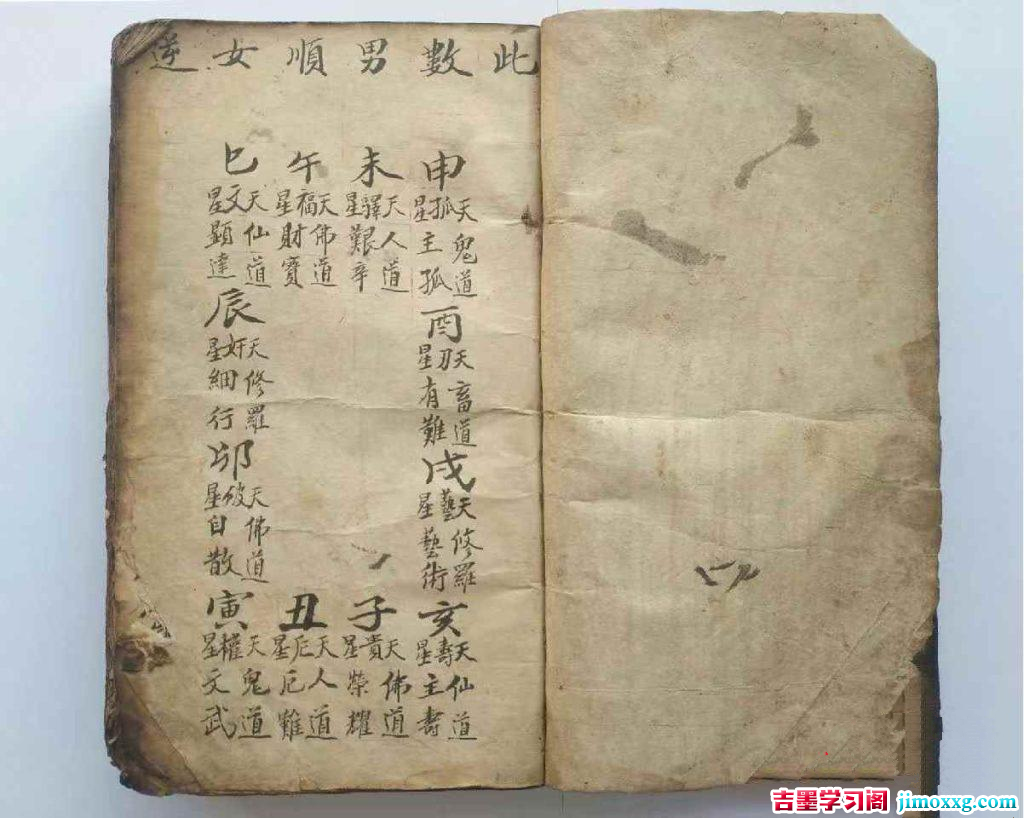 此數男順女逆
申
天孤星
鬼道
主孤
酉
天刃星
畜道
有難
戌
天藝星
修羅
藝術
亥
天壽星
仙道
主壽
未
天驛星
人道
艱辛
子
天貴星
佛道
榮耀
午
天福星
佛道
財寶
丑
天厄星
人道
厄難
巳
天文星
仙道
顯達
辰
天奸星
修羅
細行
卯
天破星
佛道
自散
寅
天權星
鬼道
文武
吉墨学习阁 jimoxxg.com